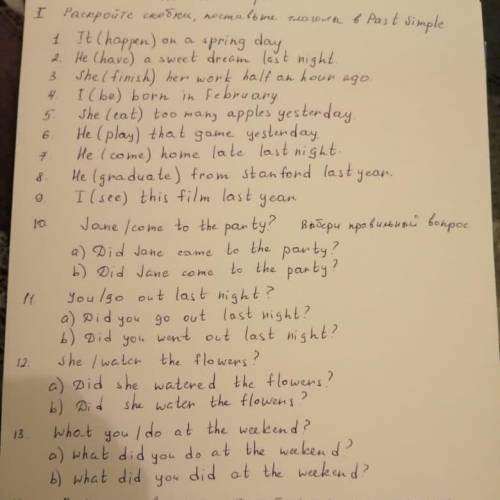 I Раскройте скобки, поставьте глаголы в Past Simple
1. It (happen) on a spring day
2. He (have) a sweet dream last night.
3. She (finish) her work half an hour ago.
4. I (be) born in February
5. She (eat) too many apples yesterday.
6. He (play) that game yesterday
7. He (come) home late last night.
8. He (graduate) from Stanford last year.
9. I (see) this film last year.
10. Jane / come to the party? Выбери правильный вопрос
a) Did Jane came to the party?
b) Did Jane come to the party?
11. You / go out last night?
a) Did you go out last night?
b) Did you went out last night?
12. She / water the flowers?
a) Did she watered the flowers?
b) Did she water the flowers?
13. What you / do at the weekend?
a) What did you do at the weekend?
b) What did you did at the weekend?